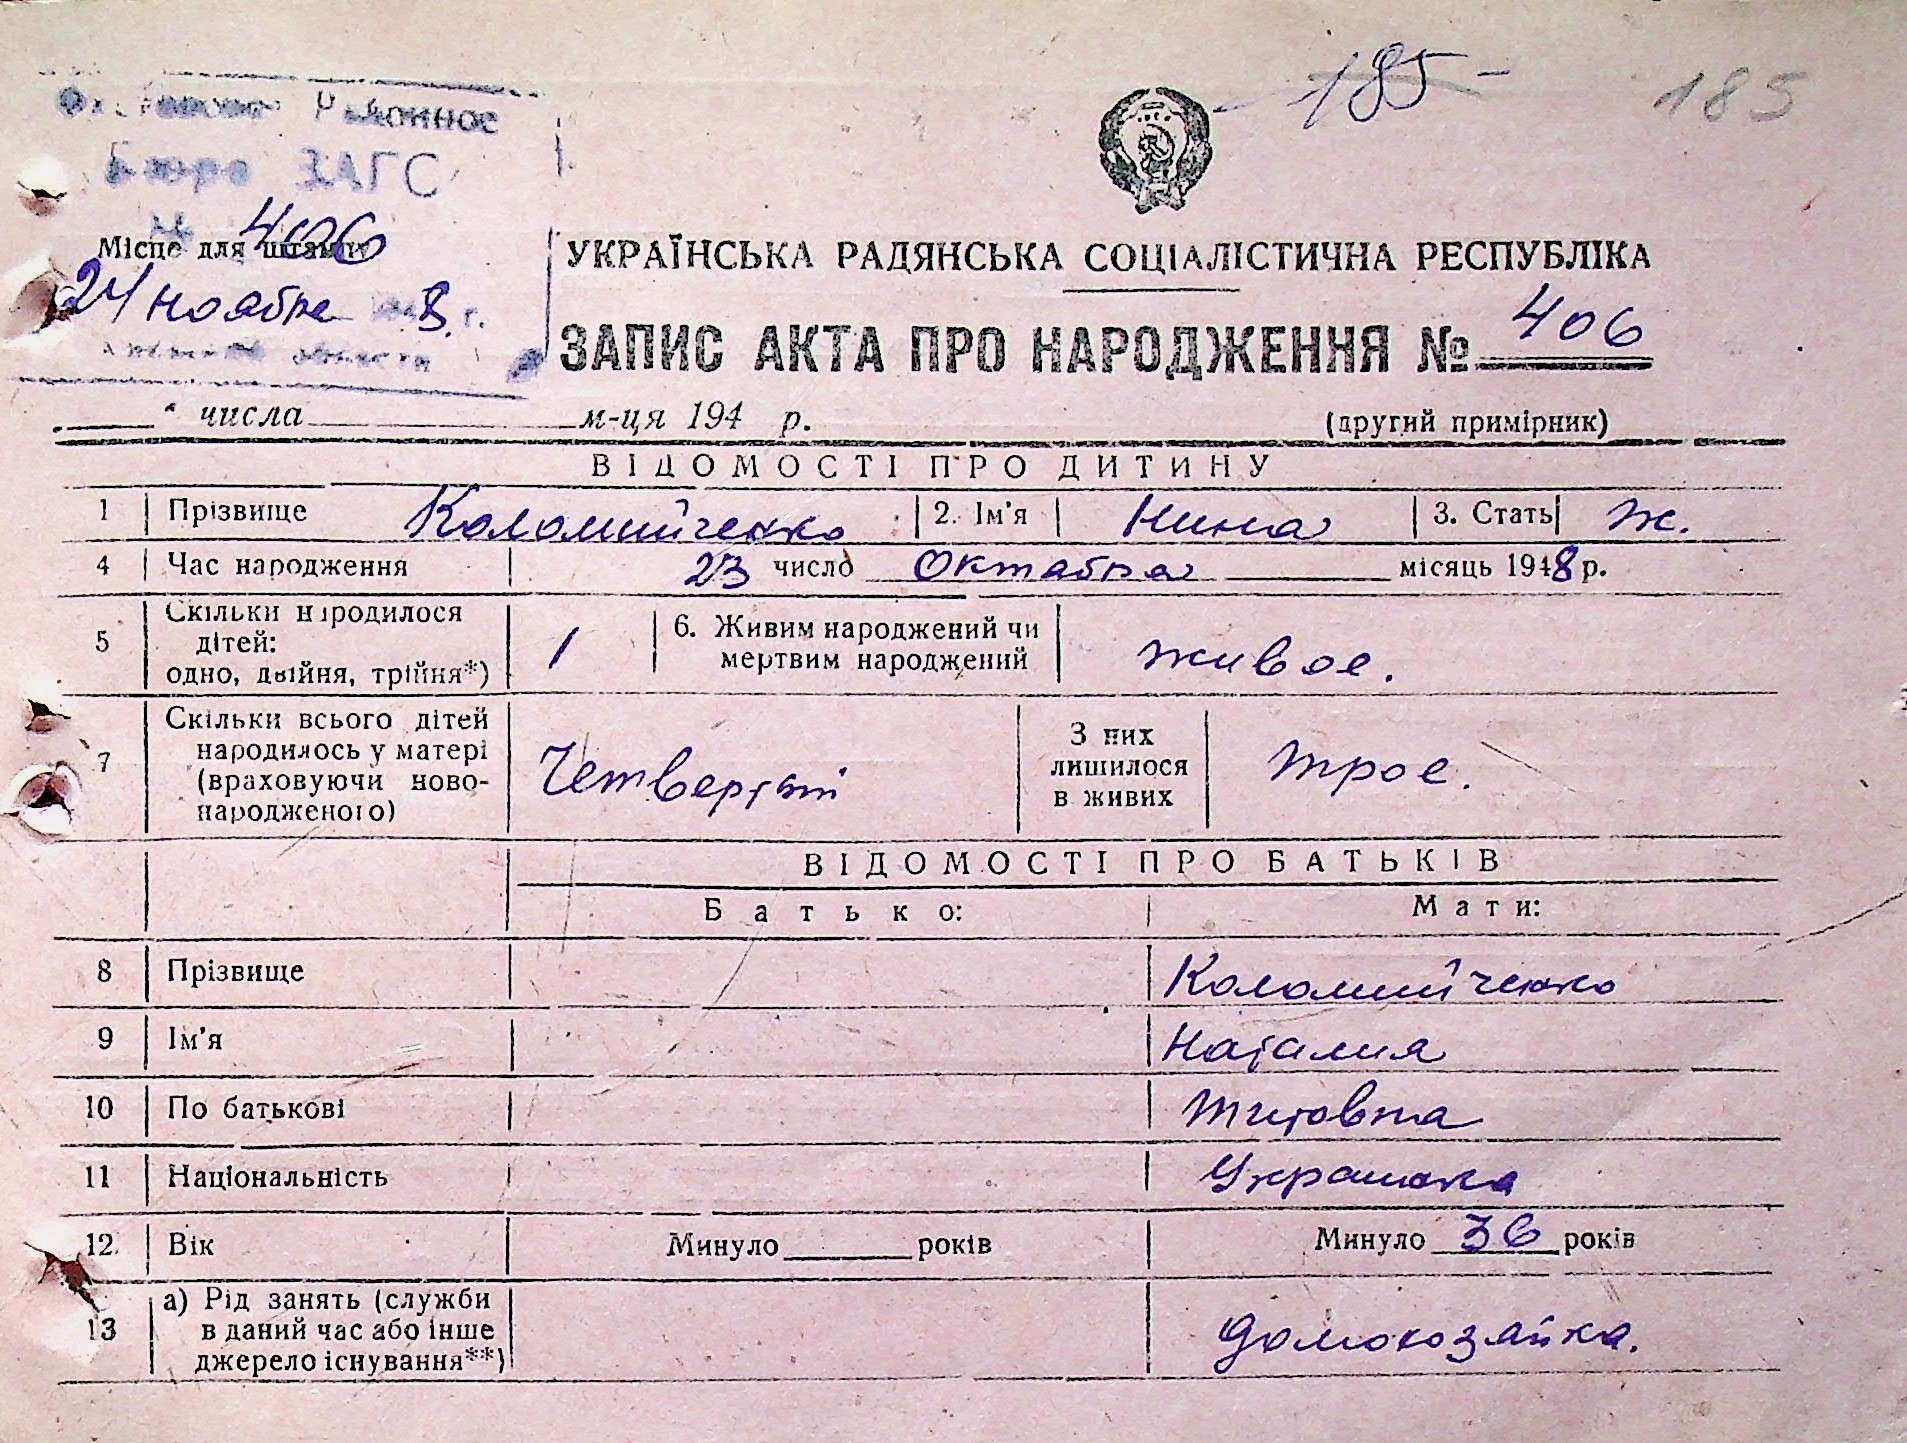 185 185
Районное
Бюро ЗАГС
406
Місце для штампу
24 ноября 8 г.
УКРАЇНСЬКА РАДЯНСЬКА СОЦІАЛІСТИЧНА РЕСПУБЛІКА
ЗАПИС АКТА ПРО НАРОДЖЕННЯ № 406
числа м-ця 194 р. (другий примірник)
ВІДОМОСТІ ПРО ДИТИНУ
1 Прізвище Коломийченко 2. Ім'я Нина 3. Стать ж.
4 Час народження 23 число Октабря місяць 1948 р.
5 Скільки народилося
дітей:
одно, двійня, трійня*) 1 6. Живим народжений чи
мертвим народжений живое.
7 Скільки всього дітей
народилось у матері
(враховуючи ново-
народженого) Четвертый З них
лишилося
в живих трое.
ВІДОМОСТІ ПРО БАТЬКІВ
Батько: Мати:
8 Прізвище Коломийченко
9 Ім'я Наталия
10 По батькові Титовна
11 Національність Украинка
12. Вік Минуло року Минуло 36 років
13 а) Рід занять (служби
в даний час або інше
джерело існування**) домохозяйка.